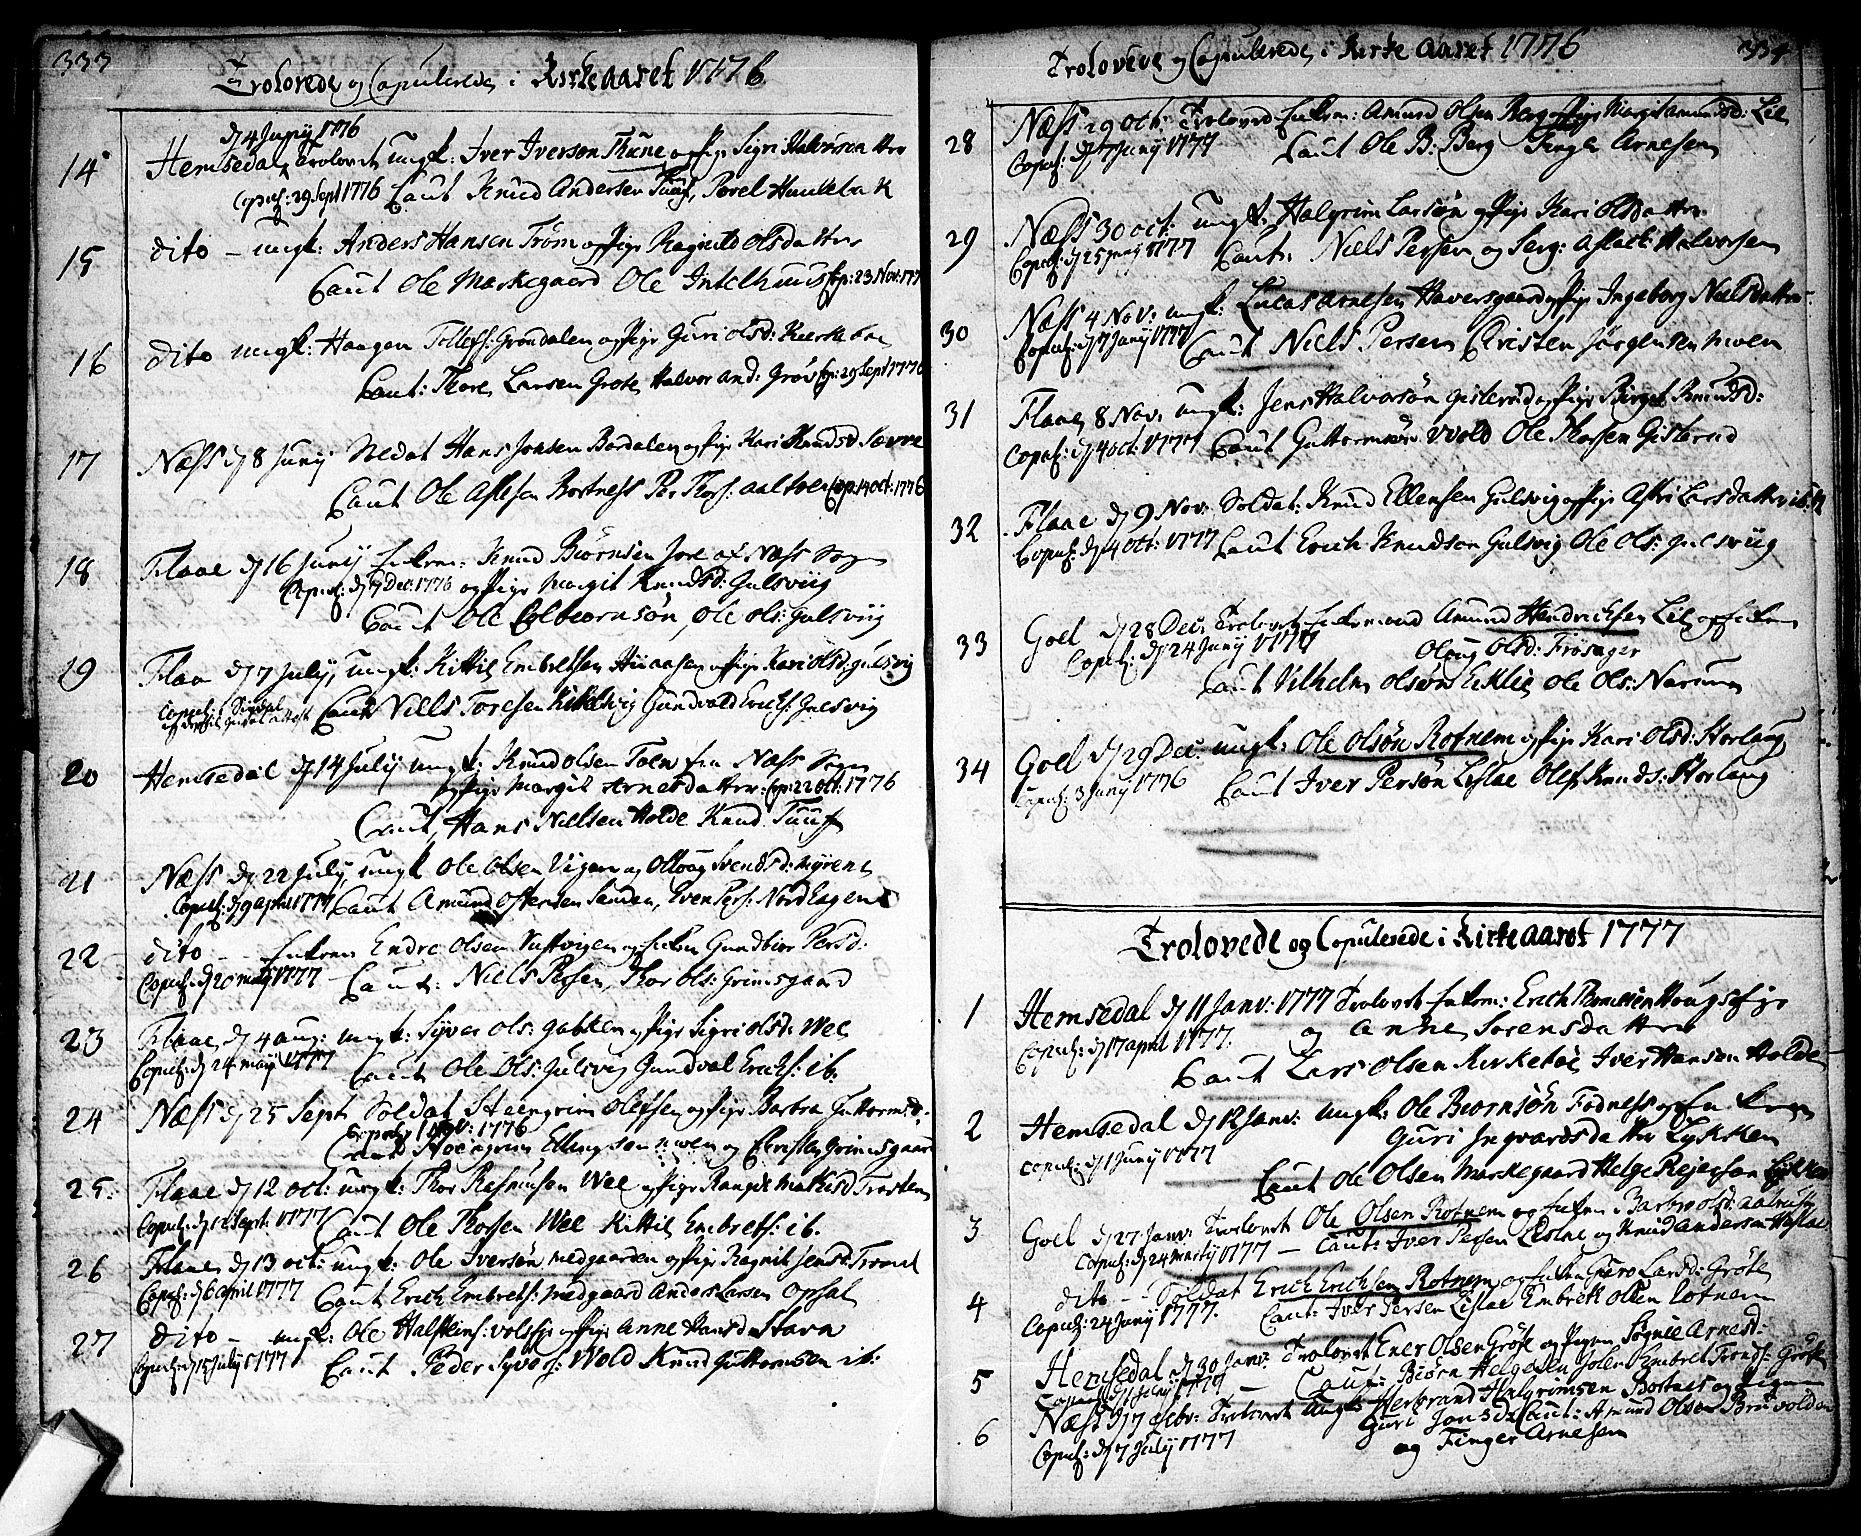 333
Trolovede og Copulerede i Kirke aaret 1776
d 4 Junÿ 1776
14 Hemsedal Trolovet ungk: Iver Iverson Thune og Pige Sigri Halvorsdatter
Copul: 29 Sept 1776 Caut Knud Andersen Tuuf, Povel
15 dito – ungk: Anders Hansen Trøm og Pige Ragnild Olsdatter
Caut Ole Markegaard Ole Intelhuus Cop: 23 Nov: 177
16 dito ungk: Haagen Tollefs: Grøndalen og Pige Guri Olsd:
Caut: Thore Larsen Grote, Halvor And: Grøv Cop: 29 Sept 1776
17 Næss d 8 Junÿ Hans Jonsen Bardalen og Pige Kari Knudsd
Caut Ole Aslesen Bortness Per Thors: Cop: 14 oct: 1776
18 Flaae d 16 Junÿ Enkem: Knud Biørnsen af Næss Sogn
Copul: d 9 Dec: 1776 og Pige Margit Knudsd: Gulsviig
Caut Ole Colbiørnsøn, Ole Ols: Gulsviig
19 Flaa d 7 July, ungk: Kittil Embretsen og Pige Kari Olsd: Gulsvig
Copul: Sigdal
Caut Niells Toresen Gundvald Erichs: Gulsvig
20 Hemsedal d 14 Julÿ ungk: Knud Olsen Toen fra Næss Sogn
og Pige Margit Arnesdatter: Cop: 22 Oct: 1776
Caut, Hans Niellsen Holde Knud Tuuf
21 Næss d 22 July, ungk Ole Olsen Vigen og Olloug Svendsd: Myrene
Copul: d 9 april 1777 Caut Amund Ostensen Sanden, Even Pers: Nordhagen
22 dito – – Enkem Endre Olsen og Enken Gundbior Persd:
Copul: d 20 maÿ 1777 – Caut: Niels Persen, Thor Ols: Grimsgaard
23 Flaae, d 4 aug: ungk: Syver Ols: Gabken og Pige Sigri Olsd: Wee
Copul: d 24 maÿ 1777 Caut Ole Ols: Gulsvig Gundval Erichs: ib:
24 Næss d 25 Sept Soldat Steengrim Olefsen og Pige Barbra Guttormsd:
Copul: 1 Nov: 1776
Caut Ellingson og Christen Grimsgaard
25 Flaae d 12 oct: ungk: Thor Rasmuson Wee og Pige Rangdi Mathisd
Copul: d 12 Sept: 1777 Caut Ole Thorsen Wee Kittil Embrets: ib.
26 Flaae, d 13 oct: ungk: Ole Iversøn Medgaarden og Pige Ragnil Jensd:
Copul: d 6 april 1777 Caut Erich Embrets: Medgaard Anders Larsen Opsal
27 dito – ungk: Ole Halsteins: og Pige Anne Hansd Stavn
Copul: d 15 Julÿ 1777 Caut Peder Syvers: Wold Knud Guttormsen ib:
334
Trolovede og Copulerede i Kirke aaret 1776
28 Næss 29 Oct: Trolovet Enkem: Amund Olsen Berg og Pige Margit Amundsd: Lie
Copul: d 7 Junÿ 1777 Caut Ole B: Berg Finger Arnesen
29 Næss 30 oct: ungk: Halgrim Larsøn og Pige Kari Olsdatter
Copul: d 25 Junÿ 1777 Caut: Niels Persen og Serg: Aslach Halvorsen
30 Næss 4 Nov: ungk: Lucas Arnesen Haversgaard og Pige Ingeborg Nielsdatter
Copul: d 7 Junÿ 1777 Caut Niels Persen Christen Jørgensen moen
31 Flaae, 8 Nov: ungk: Jens Halvorsøn Gislerud og Pige Birgit Knudsd:
Copul: d 4 oct: 1777 Caut Guttormsøn Wold Ole Thorsen Gislerud
32 Flaae d 9 Nov: Soldat: Knud Ellensen Gulsvig og Pige Astri Larsdatter
Copul: d 4 oct: 1777 Caut Erich Knudson Gulsvig Ole Ols: Gulsviig
33 Goel d 28 Dec: Trolovet Enkemand Amund Hendrichsen Lie og Enken
Copul: d 24 Junÿ 1777 Oloug Olsd: Frøsager
Caut Vilhelm Olsøn Eklie Ole Ols: Narum
34 Goel d 29 Dec: ungk: Ole Olsøn Rotnem og Pige Kari Olsd: Storlaug
Copul: 3 Junÿ 1776 Caut Iver Persøn Lislae Olef Knuds: Storlaug
Trolovede og Copulerede i Kirke aaret 1777
1 Hemsedal d 11 Janv: 1777 Trolovet Enkem: Erich Haugs og Pige
Copul: d 17 april 1777. og Anne Sørensdatter
Caut Lars Olsen Kirkebøe Iver Hanson Holde
2 Hemsedal d 12 Janv: ungk: Ole Biørnsøn Fodness og Enken
Copul: d 1 Junÿ 1777 Guri Ingvardsdatter Lykken
Caut Ole Olsen Markegaard Helge Rejerson Lykken
3 Goel d 27 Janv: Trolovet Ole Olsen Rotnem og Enken Barbro Olsd:
Copul: d 24 martÿ 1777 – Caut: Iver Persen Lislae og Knud Andersen Haslae
4 dito – – Soldat Erich Erichsen Rotnem og Enken Guro Larsd: Grøte
Copul: 24 Junÿ 1777. Caut: Iver Persen Lislae Embrek Olsen Rotnem
5 Hemsedal d 30 Janv: Trolovet Ener Olsen Grøte og Pigen Sognie Arnesd:
Copul: d 1 Julÿ 1777 – Caut: Biørn Helgesen Embret Tronds: Grøte
6 Næss d 7 Febr: Trolovet ungk: Herbrand Halgrimsen Bortnes og Pigen
Copul: d 7 Julÿ 1777 Guri Jonsd: Caut: Amund Olsen Bruvolden
og Finger Arnesen